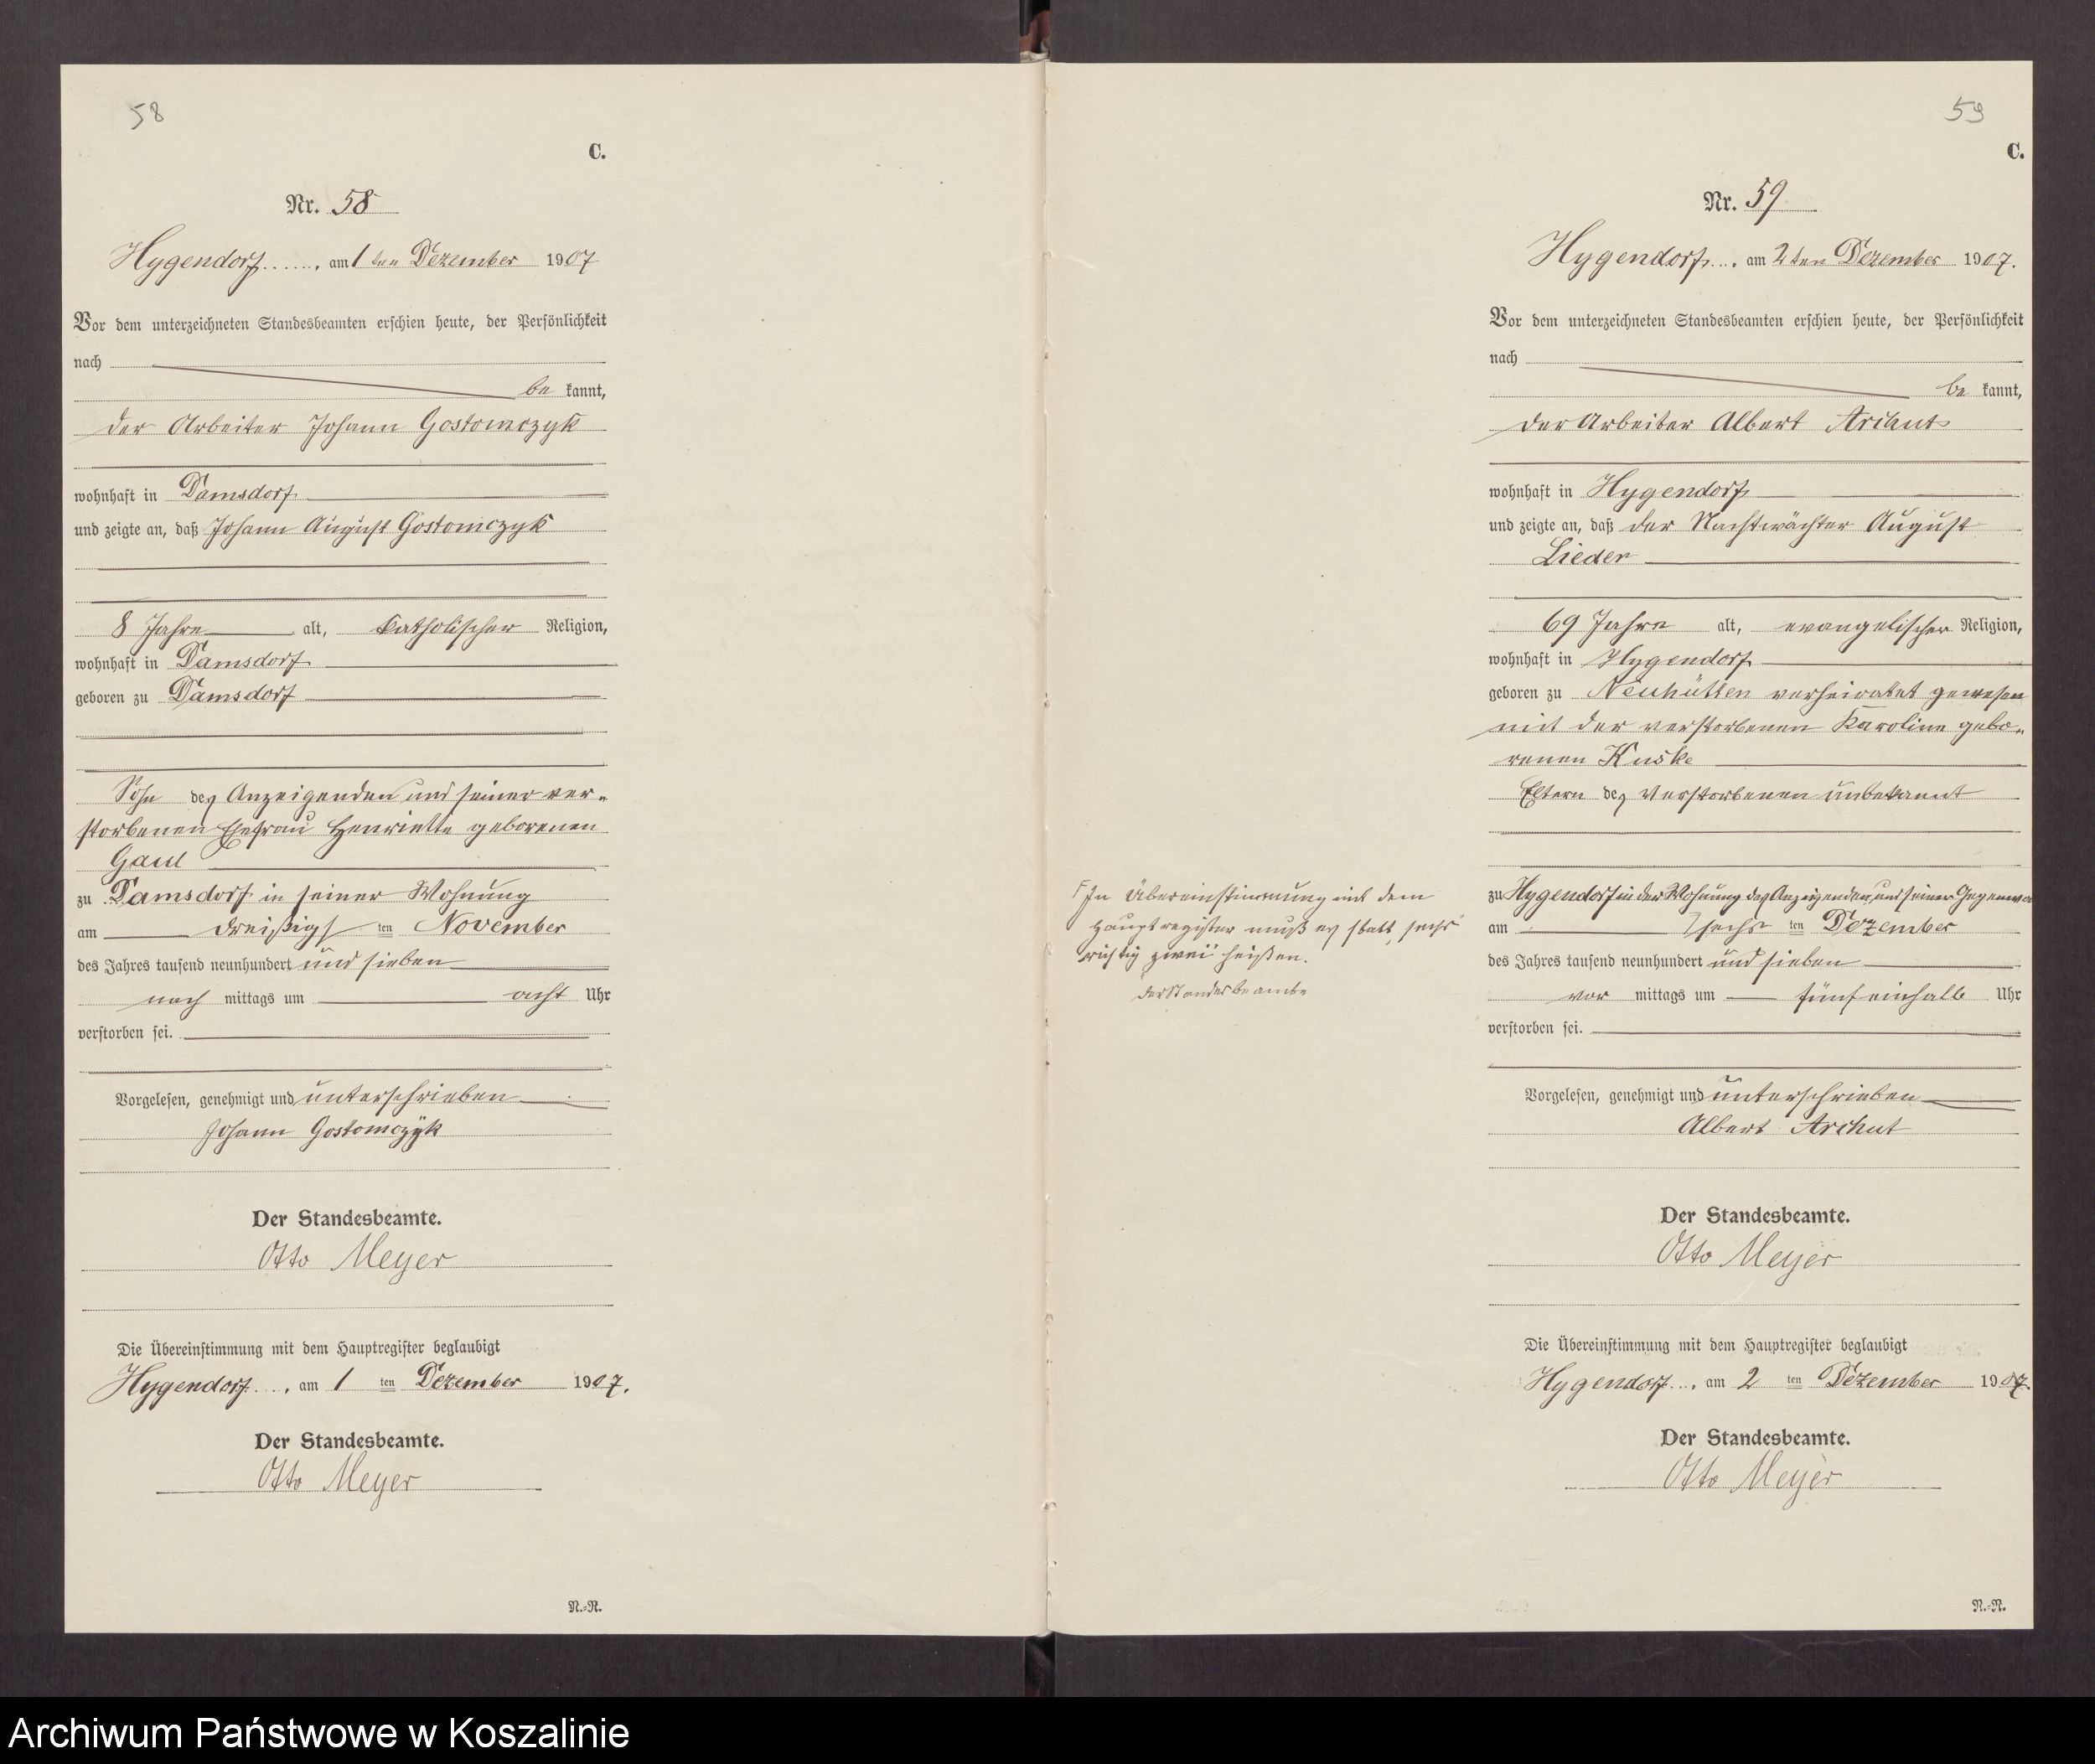 58
C.
Nr. 58
Hygendorf, am 1ten Dezember 1907
Vor dem unterzeichneten Standesbeamten erschien heute, der Persönlichkeit
nach
be kannt,
der Arbeiter Johann Gostomczyk
wohnhaft in Damsdorf
und zeigte an, daß Johann August Gostomczyk
8 Jahre alt, katholischer Religion,
wohnhaft in Damsdorf
geboren zu Damsdorf
Sohn des Anzeigenden und seiner ver-
storbenen Ehefrau Henriette geborenen
Gaul
zu Damsdorf in seiner Wohnung
am dreißigsten November
des Jahres tausend neunhundert und sieben
nach mittags um acht Uhr
verstorben sei.
Vorgelesen, genehmigt und unterschrieben
Johann Gostomczyk
Der Standesbeamte.
Otto Meyer
Die Übereinstimmung mit dem Hauptregister beglaubigt
Hygendorf, am 1 ten Dezember 1907.
Der Standesbeamte.
Otto Meyer
N.-R.
59
C.
Nr. 59
Hygendorf, am 2ten Dezember 1907.
Vor dem unterzeichneten Standesbeamten erschien heute, der Persönlichkeit
nach
be kannt,
der Arbeiter Albert Archut
wohnhaft in Hygendorf
und zeigte an, daß der Nachtwächter August
Lieder
69 Jahre alt, evangelischer Religion,
wohnhaft in Hygendorf
geboren zu Neuhütten verheiratet gewesen
mit der verstorbenen Karoline gebo-
renen Kuske
Eltern des Verstorbenen unbekannt
zu Hygendorf in der Wohnung des Anzeigenden und seiner Gegenwa
am sechs ten Dezember
des Jahres tausend neunhundert und sieben
vor mittags um fünfeinhalb Uhr
verstorben sei.
In Übereinstimmung mit dem
Hauptregister muß es statt „sechs"
richtig zwei heißen.
Der Standesbeamte
Vorgelesen, genehmigt und unterschrieben
Albert Archut
Der Standesbeamte.
Otto Meyer
Die Übereinstimmung mit dem Hauptregister beglaubigt
Hygendorf, am 2 ten Dezember 1907.
Der Standesbeamte.
Otto Meyer
N.-R.
Archiwum Państwowe w Koszalinie